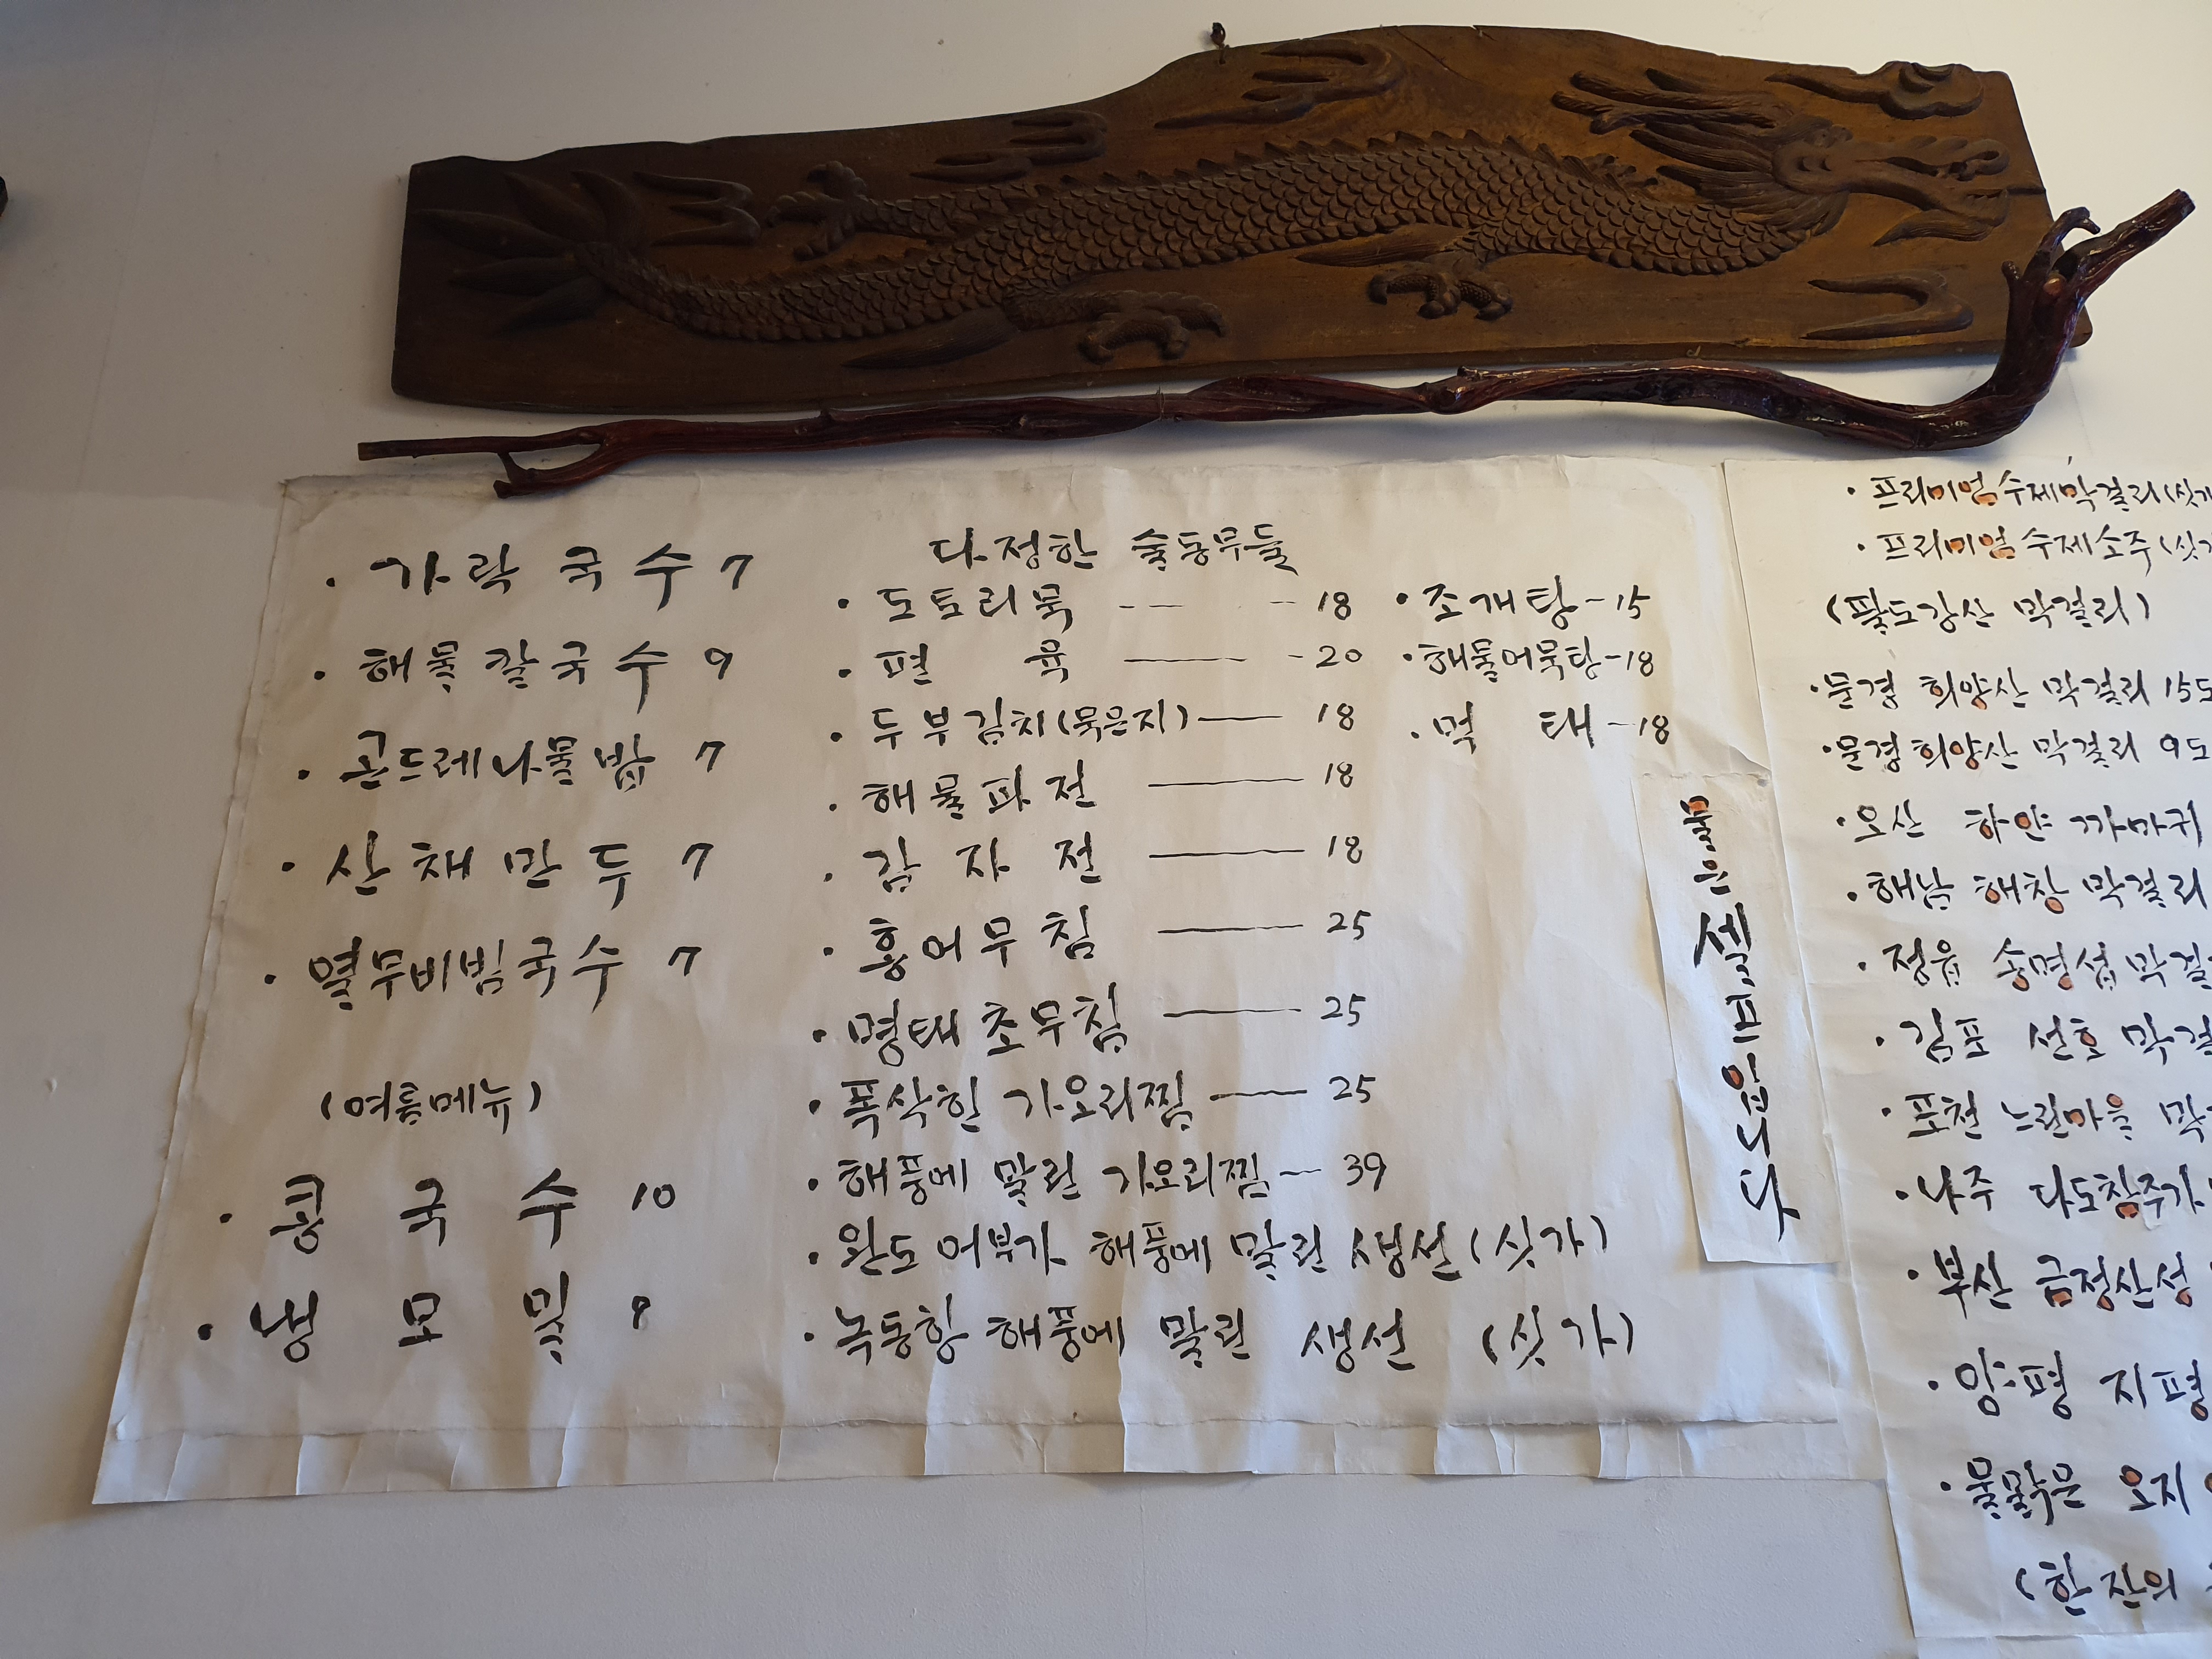 · 가락국수 7
· 해물칼국수 9
· 곤드레나물밥 7
· 산채만두 7
· 열무비빔국수 7
(여름메뉴)
· 콩국수 10
· 냉모밀 8
다정한 술동무들
· 도토리묵 --- 18
· 편육 --- 20
· 두부김치(묵은지) --- 18
· 해물파전 --- 18
· 감자전 --- 18
· 홍어무침 --- 25
· 명태초무침 --- 25
· 폭삭한 가오리찜 --- 25
· 해풍에 말린 가오리찜 -- 39
· 완도 어부가 해풍에 말린 생선 (싯가)
· 녹동항 해풍에 말린 생선 (싯가)
· 조개탕 - 15
· 해물어묵탕 - 18
· 먹태 - 18
수요일 센
· 프리미엄 수제막걸리 (싯가
· 프리미엄 수제소주 (싯가
(팔도강산 막걸리)
· 문경 희양산 막걸리 15도
· 문경 희양산 막걸리 9도
· 오산 하얀 까마귀
· 해남 해창 막걸리
· 정읍 송명섭 막걸리
· 김포 선호 막걸
· 포천 느린마을 막
· 나주 다도참주가
· 부산 금정산성
· 양평 지평
· 물맑은 오지
(한 잔의